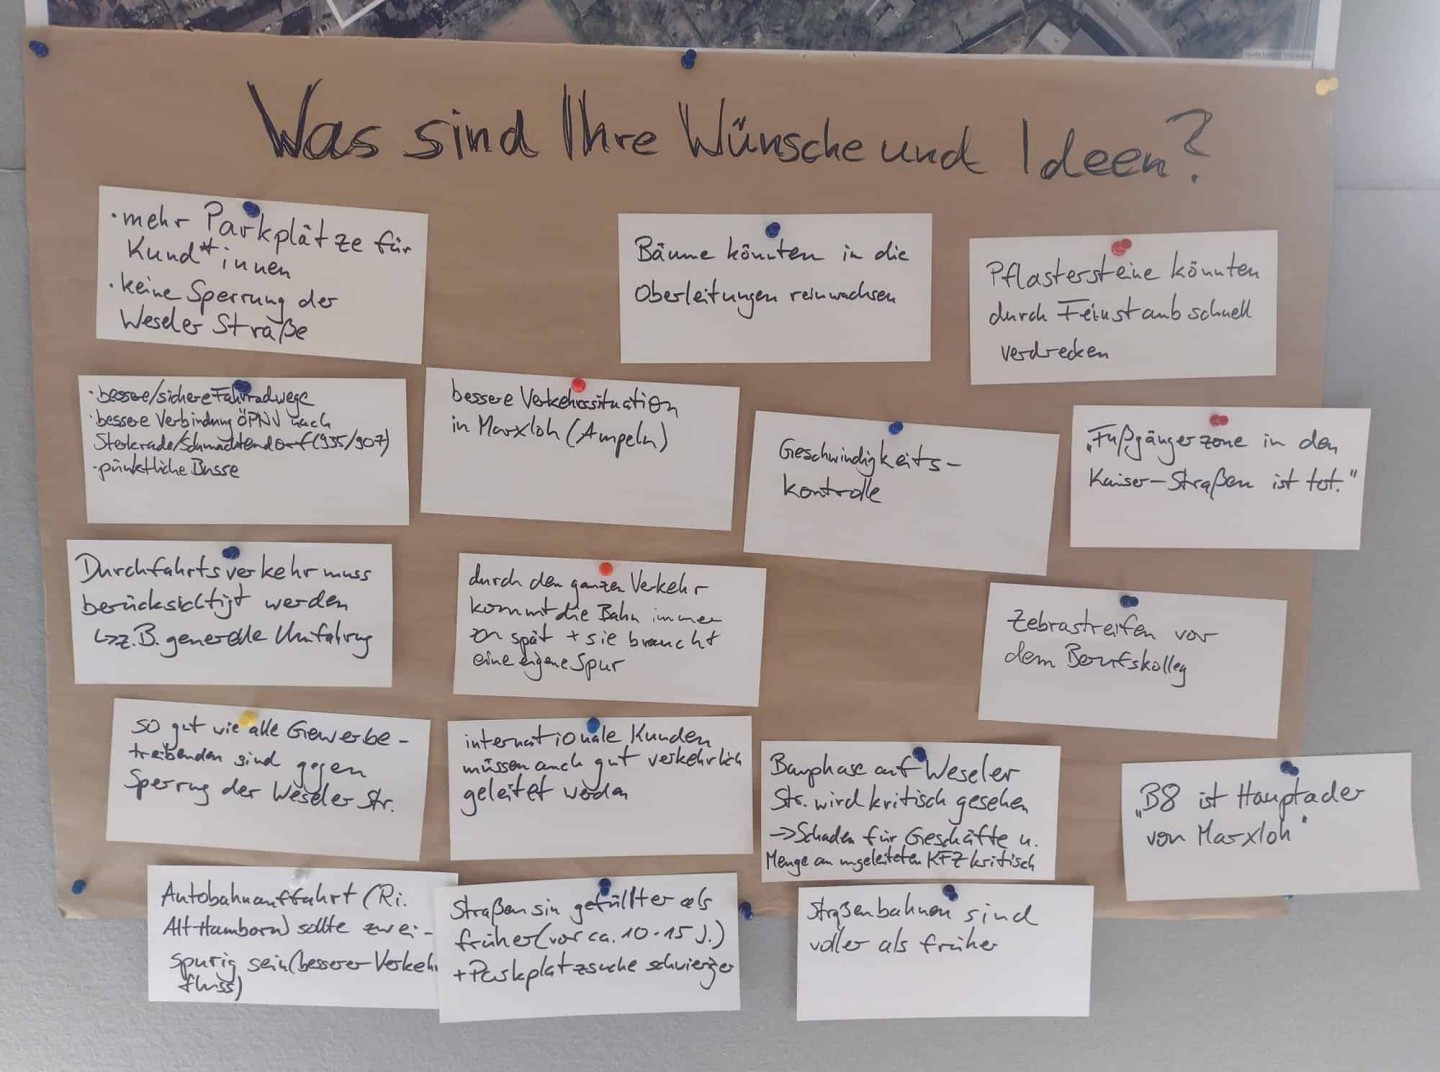 Was sind Ihre Wünsche und Ideen?
· mehr Parkplätze für
Kund*innen
· keine Sperrung der
Weseler Straße
Bäume könnten in die
Oberleitungen reinwachsen
Pflastersteine könnten
durch Feinstaub schnell
verdrecken
· bessere/sichere Fahrradwege
· bessere Verbindung ÖPNV nach
Sterkrade/Schmachtendorf (935/907)
· pünktliche Busse
bessere Verkehrssituation
in Marxloh (Ampeln)
Geschwindigkeits-
kontrolle
„Fußgängerzone in den
Kaiser-Straßen ist tot."
Durchfahrtsverkehr muss
berücksichtigt werden
↳ z.B. generelle Umfahrung
durch den ganzen Verkehr
kommt die Bahn immer
zu spät + sie braucht
eine eigene Spur
Zebrastreifen vor
dem Berufskolleg
so gut wie alle Gewerbe-
treibenden sind gegen
Sperrung der Weseler Str.
internationale Kunden
müssen auch gut verkehrlich
geleitet werden
Bauphase auf Weseler
Str. wird kritisch gesehen
→ Schaden für Geschäfte u.
Menge an umgeleiteten KFZ kritisch
„B8 ist Hauptader
von Marxloh"
Autobahnauffahrt (Ri.
Alt-Hamborn) sollte zwei-
spurig sein (besserer Verkehr
fluss)
Straßen sin gefüllter als
früher (vor ca. 10-15 J.)
+ Parkplatzsuche schwieriger
Straßenbahnen sind
voller als früher